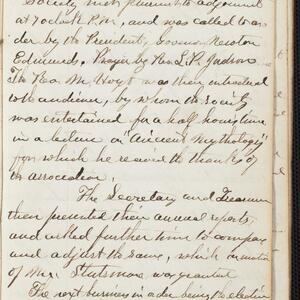 Society met pursuant to adjourned
at 7 oclock P.M., and was called to or
der by the President, Governor Newton
Edmunds, Prayer by Rev. L.P. Judson
The Rev. Mr. Hoyt was then introduced
to the audience, by whom the society
was entertained for a half hours time
in a lecture on "Ancient Mythology"
for which he received the thanks of
the association.
The Secretary and Treasurer
then presented their annual reports,
and asked further time to compare
and adjust the same, which on motion
of Mr. Stutsman was granted
The next business in order being the election